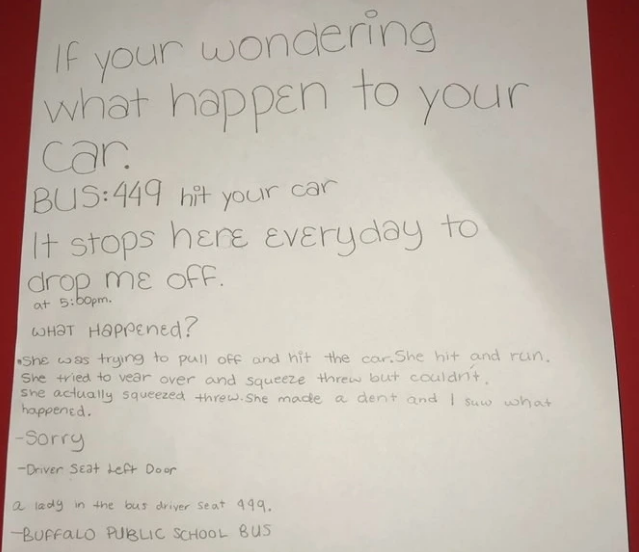 If your wondering
what happen to your
car.
BUS:449 hit your car
It stops here everyday to
drop me off.
at 5:00pm.
WHAT HAPPENED?
•She was trying to pull off and hit the car.She hit and run.
She tried to vear over and squeeze threw but couldn't.
she actually squeezed threw.She made a dent and I saw what
happened.
-Sorry
-Driver Seat Left Door
a lady in the bus driver seat 449.
-BUFFALO PUBLIC SCHOOL BUS